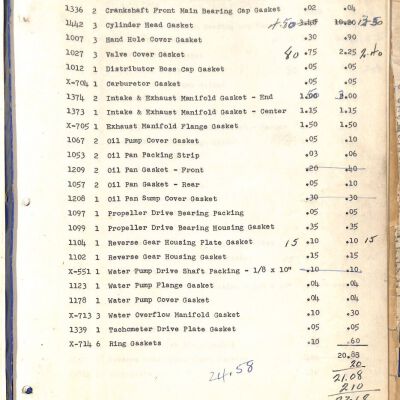 1336 2 Crankshaft Front Main Bearing Cap Gasket .02 .04
1442 3 Cylinder Head Gasket 4 50
1007 3 Hand Hole Cover Gasket .30 .90
1027 3 Valve Cover Gasket 80 .75 2.25 2.40
1012 1 Distributor Boss Cap Gasket .05 .05
X-704 1 Carburetor Gasket .05 .05
1374 2 Intake & Exhaust Manifold Gasket - End
1373 1 Intake & Exhaust Manifold Gasket - Center 1.15 1.15
X-705 1 Exhaust Manifold Flange Gasket 1.50 1.50
1067 2 Oil Pump Cover Gasket .05 .10
1053 2 Oil Pan Packing Strip .03 .06
1209 2 Oil Pan Gasket - Front .20 .40
1057 2 Oil Pan Gasket - Rear .05 .10
1208 1 Oil Pan Sump Cover Gasket .30 .30
1097 1 Propeller Drive Bearing Packing .05 .05
1099 1 Propeller Drive Bearing Housing Gasket .35 .35
1104 1 Reverse Gear Housing Plate Gasket 15 .10 .10 15
1102 1 Reverse Gear Housing Gasket .15 .15
X-551 1 Water Pump Drive Shaft Packing - 1/8 x 10" .10 .10
1123 1 Water Pump Flange Gasket .04 .04
1178 1 Water Pump Cover Gasket .04 .04
X-713 3 Water Overflow Manifold Gasket .10 .30
1339 1 Tachometer Drive Plate Gasket .05 .05
X-714 6 Ring Gaskets .10 .60
20.88
24.58 20
21.08
210